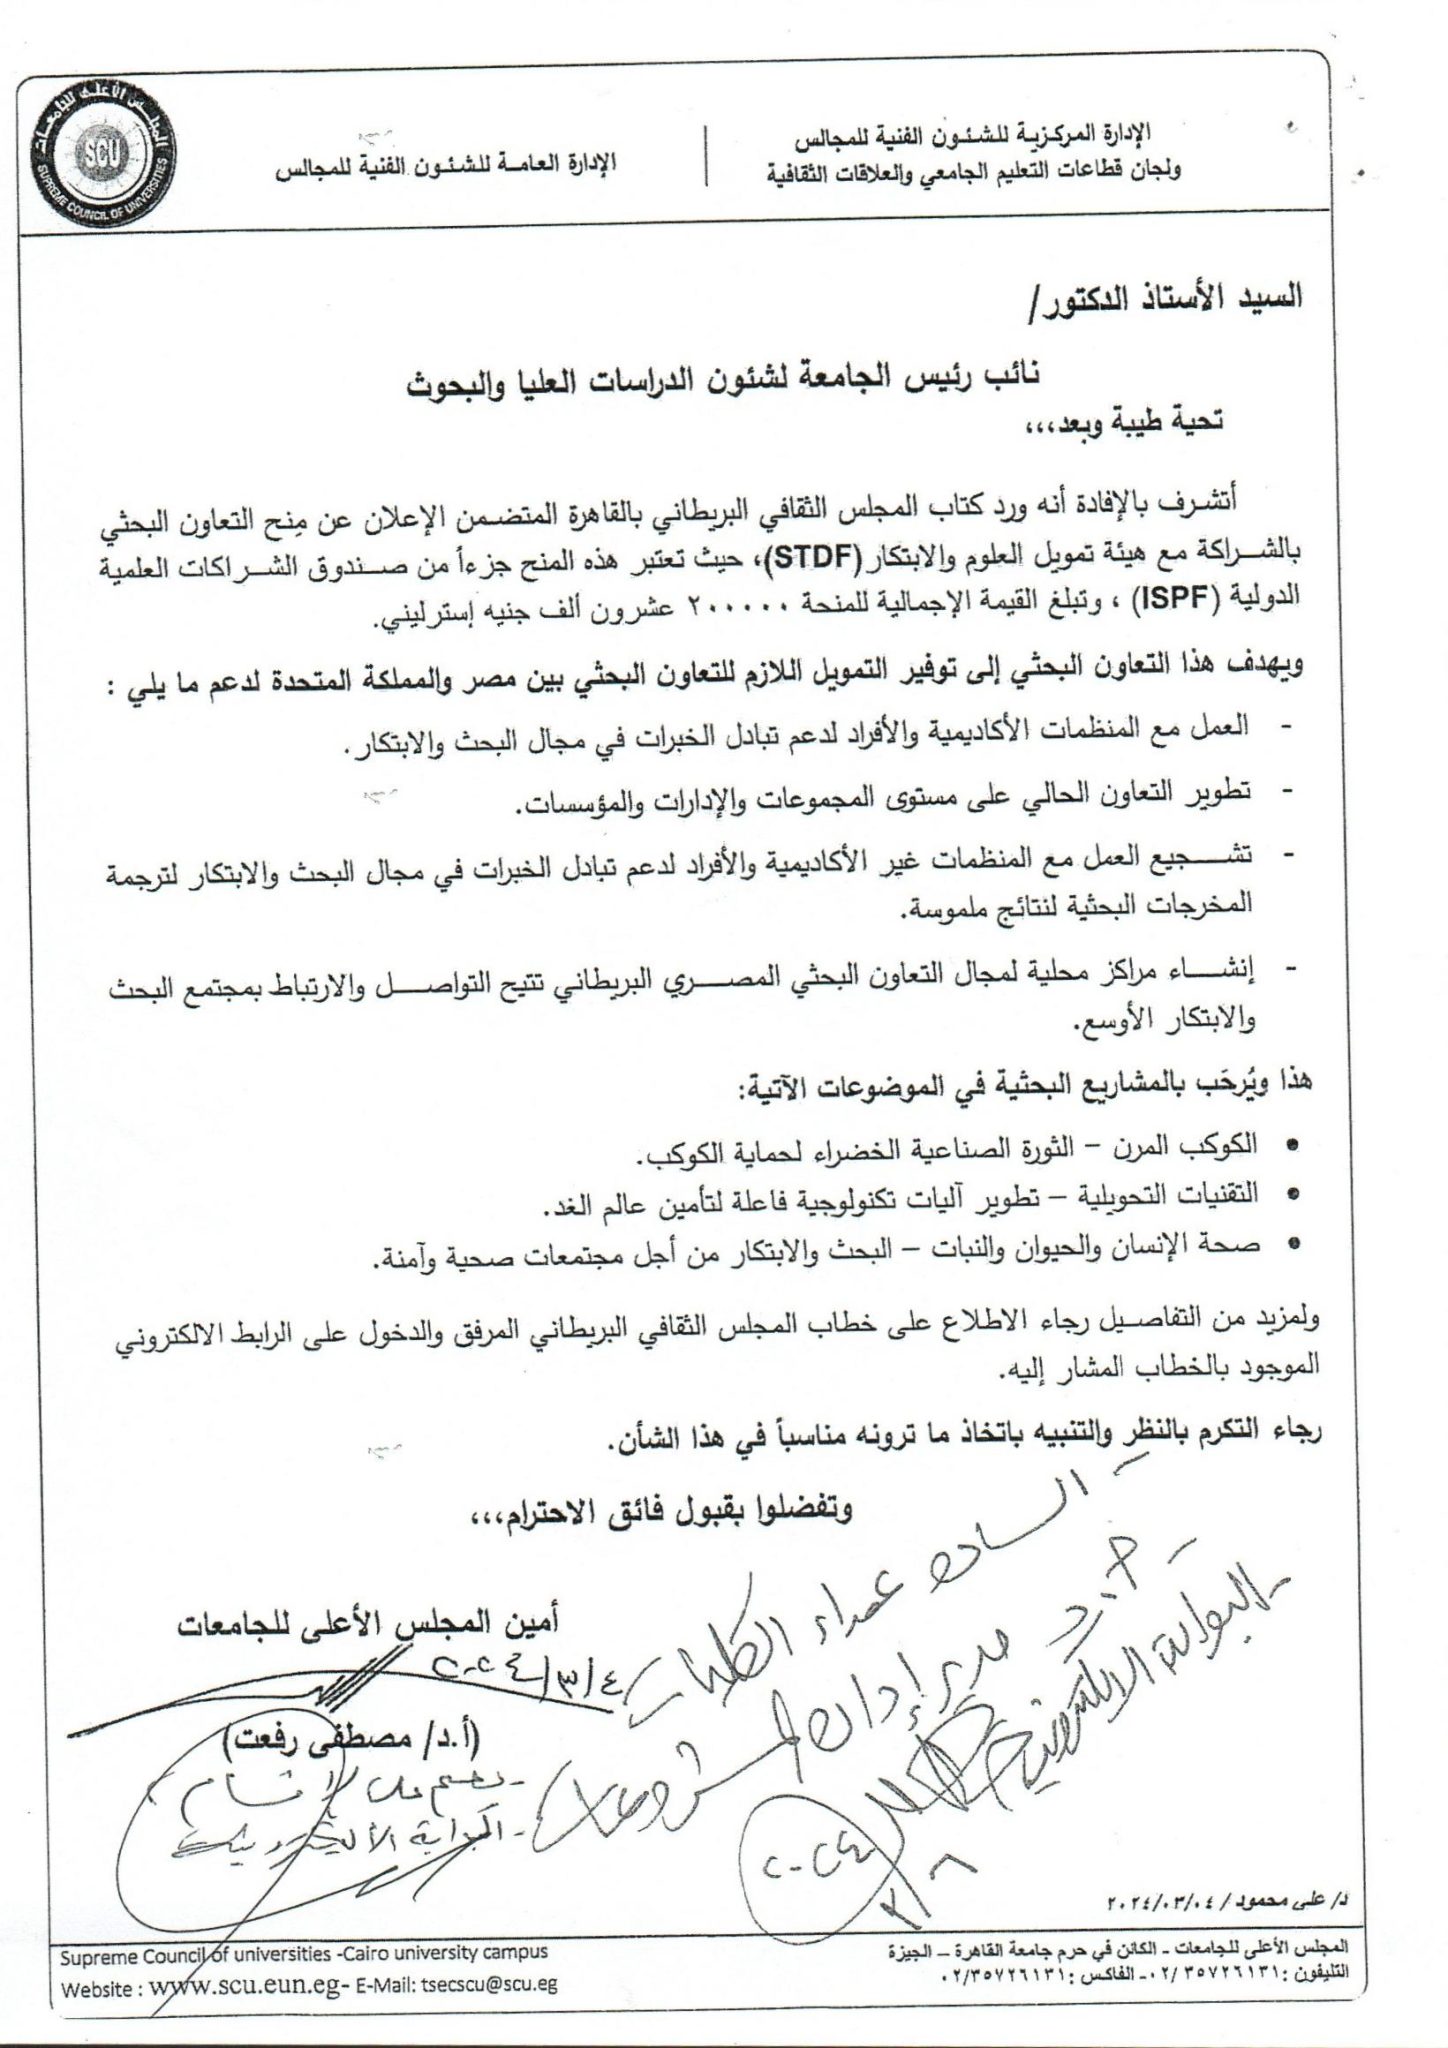 المجلس الأعلى للجامعات
SCU
SUPREME COUNCIL OF UNIVERSITIES
الإدارة المركزية للشئون الفنية للمجالس
ولجان قطاعات التعليم الجامعي والعلاقات الثقافية
الإدارة العامة للشئون الفنية للمجالس
السيد الأستاذ الدكتور/
نائب رئيس الجامعة لشئون الدراسات العليا والبحوث
تحية طيبة وبعد،،،
أتشرف بالإفادة أنه ورد كتاب المجلس الثقافي البريطاني بالقاهرة المتضمن الإعلان عن مِنح التعاون البحثي
بالشراكة مع هيئة تمويل العلوم والابتكار (STDF)، حيث تعتبر هذه المنح جزءاً من صندوق الشراكات العلمية
الدولية (ISPF) ، وتبلغ القيمة الإجمالية للمنحة ٢٠٠٠٠٠ عشرون ألف جنيه إسترليني.
ويهدف هذا التعاون البحثي إلى توفير التمويل اللازم للتعاون البحثي بين مصر والمملكة المتحدة لدعم ما يلي :
- العمل مع المنظمات الأكاديمية والأفراد لدعم تبادل الخبرات في مجال البحث والابتكار.
- تطوير التعاون الحالي على مستوى المجموعات والإدارات والمؤسسات.
- تشجيع العمل مع المنظمات غير الأكاديمية والأفراد لدعم تبادل الخبرات في مجال البحث والابتكار لترجمة
المخرجات البحثية لنتائج ملموسة.
- إنشاء مراكز محلية لمجال التعاون البحثي المصري البريطاني تتيح التواصل والارتباط بمجتمع البحث
والابتكار الأوسع.
هذا ويُرحَب بالمشاريع البحثية في الموضوعات الآتية:
• الكوكب المرن – الثورة الصناعية الخضراء لحماية الكوكب.
• التقنيات التحويلية – تطوير آليات تكنولوجية فاعلة لتأمين عالم الغد.
• صحة الإنسان والحيوان والنبات – البحث والابتكار من أجل مجتمعات صحية وآمنة.
ولمزيد من التفاصيل رجاء الاطلاع على خطاب المجلس الثقافي البريطاني المرفق والدخول على الرابط الالكتروني
الموجود بالخطاب المشار إليه.
رجاء التكرم بالنظر والتنبيه باتخاذ ما ترونه مناسباً في هذا الشأن.
وتفضلوا بقبول فائق الاحترام،،،
- الساده عمداء الكليات
مدير إدارة المشروعات
- البوابة الالكترونية
٢٠٢٤
أمين المجلس الأعلى للجامعات
٢٠٢٤/٣/٤
(أ.د/ مصطفى رفعت)
- البوابة الألكترونية
د/ على محمود / ٢٠٢٤/٠٣/٠٤
المجلس الأعلى للجامعات - الكائن في حرم جامعة القاهرة – الجيزة
التليفون : ٣٥٧٢٦١٣١ /٠٢ - الفاكس : ٠٢/٣٥٧٢٦١٣١
Supreme Council of universities -Cairo university campus
Website : www.scu.eun.eg- E-Mail: tsecscu@scu.eg